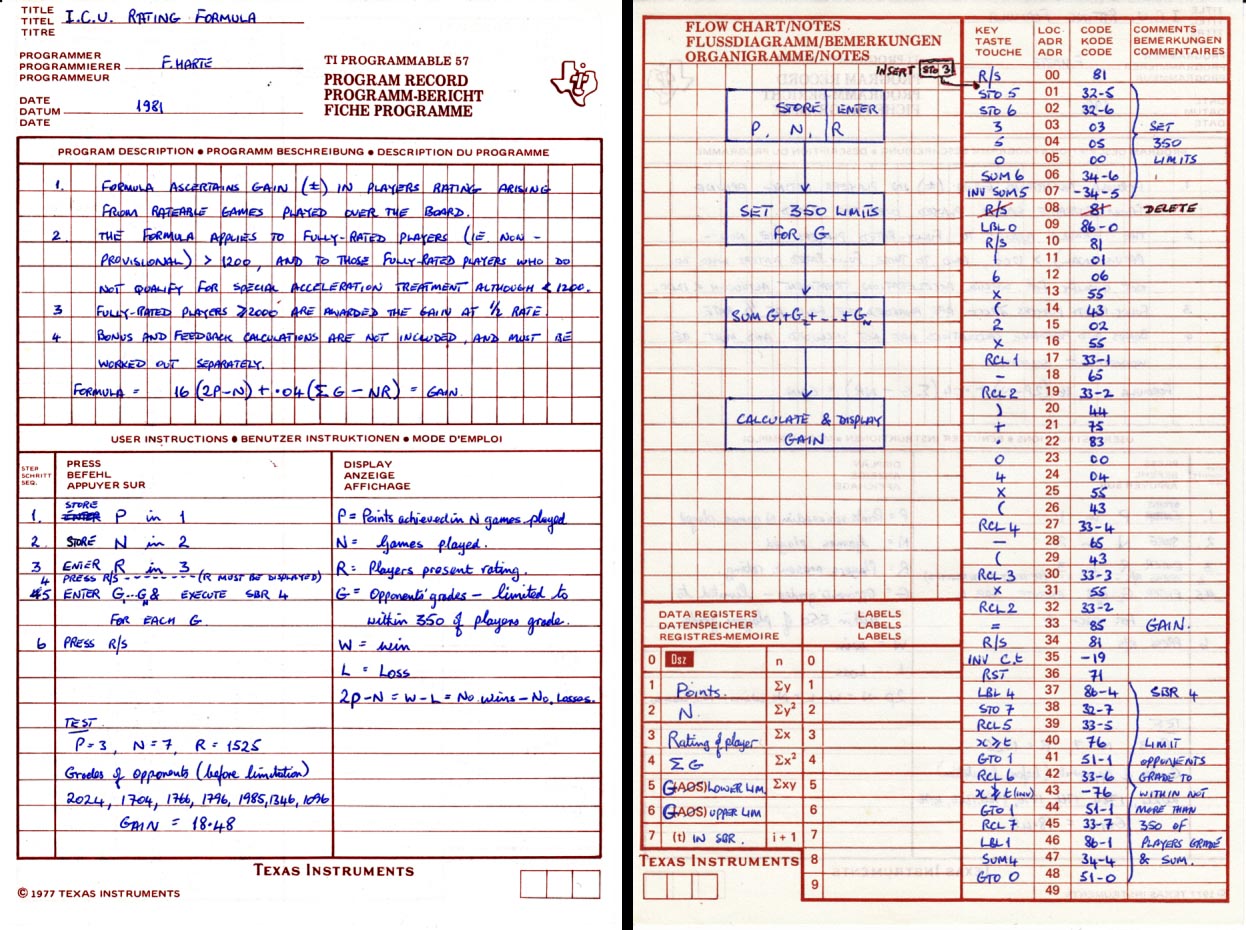 TITLE
TITEL I.C.U. RATING FORMULA
TITRE
PROGRAMMER
PROGRAMMIERER F. HARTE
PROGRAMMEUR
DATE
DATUM 1981
DATE
TI PROGRAMMABLE 57
PROGRAM RECORD
PROGRAMM-BERICHT
FICHE PROGRAMME
PROGRAM DESCRIPTION ● PROGRAMM BESCHREIBUNG ● DESCRIPTION DU PROGRAMME
1. FORMULA ASCERTAINS GAIN (±) IN PLAYERS RATING ARISING
FROM RATEABLE GAMES PLAYED OVER THE BOARD.
2 THE FORMULA APPLIES TO FULLY-RATED PLAYERS (IE NON-
PROVISIONAL) > 1200, AND TO THOSE FULLY-RATED PLAYERS WHO DO
NOT QUALIFY FOR SPECIAL ACCELERATION TREATMENT ALTHOUGH < 1200.
3 FULLY-RATED PLAYERS ⩾2000 ARE AWARDED THE GAIN AT ½ RATE.
4 BONUS AND FEEDBACK CALCULATIONS ARE NOT INCLUDED, AND MUST BE
WORKED OUT SEPARATELY.
FORMULA = 16 (2P-N) + .04 (Σ G - NR) = GAIN
USER INSTRUCTIONS ● BENUTZER INSTRUKTIONEN ● MODE D'EMPLOI
STEP
SCHRITT
SEQ.
PRESS
BEFEHL
APPUYER SUR
DISPLAY
ANZEIGE
AFFICHAGE
STORE
1. ENTER P in 1
2. STORE N in 2
3 ENTER R in 3
4 PRESS R/S ------- (R MUST BE DISPLAYED)
5 ENTER G1...GN & EXECUTE SBR 4
FOR EACH G
6 PRESS R/S
P = Points achieved in N games played
N = Games played.
R = Players present rating.
G = Opponents' grades - limited to
within 350 of players grade.
W = win
L = Loss
2P-N = W-L = No. wins - No. Losses.
TEST
P=3, N=7, R = 1525
Grades of opponents (before limitation)
2024, 1704, 1766, 1796, 1985, 1346, 1096
GAIN = 18.48
TEXAS INSTRUMENTS
© 1977 TEXAS INSTRUMENTS
FLOW CHART/NOTES
FLUSSDIAGRAMM/BEMERKUNGEN
ORGANIGRAMME/NOTES
INSERT STO 3
STORE ENTER
P, N, R
SET 350 LIMITS
FOR G
SUM G1+G2+ - - +GN
CALCULATE & DISPLAY
GAIN
KEY
TASTE
TOUCHE
LOC
ADR
ADR
CODE
KODE
CODE
COMMENTS
BEMERKUNGEN
COMMENTAIRES
R/S 00 81
STO 5 01 32-5
STO 6 02 32-6
3 03 03 SET
5 04 05 350
0 05 00 LIMITS
SUM 6 06 34-6
INV SUM 5 07 -34-5
R/S 08 81 DELETE
LBL 0 09 86-0
R/S 10 81
1 11 01
6 12 06
X 13 55
( 14 43
2 15 02
X 16 55
RCL 1 17 33-1
- 18 65
RCL 2 19 33-2
) 20 44
+ 21 75
. 22 83
0 23 00
4 24 04
X 25 55
( 26 43
RCL 4 27 33-4
- 28 65
( 29 43
RCL 3 30 33-3
X 31 55
RCL 2 32 33-2
= 33 85 GAIN.
R/S 34 81
INV C.t 35 -19
RST 36 71
LBL 4 37 86-4 SBR 4
STO 7 38 32-7
RCL 5 39 33-5
x⩾t 40 76 LIMIT
GTO 1 41 51-1 OPPONENTS
RCL 6 42 33-6 GRADE TO
x⩾t (INV) 43 -76 WITHIN NOT
GTO 1 44 51-1 MORE THAN
RCL 7 45 33-7 350 OF
LBL 1 46 86-1 PLAYERS GRADE
SUM 4 47 34-4 & SUM.
GTO 0 48 51-0
49
DATA REGISTERS
DATENSPEICHER
REGISTRES-MEMOIRE
LABELS
LABELS
LABELS
0 Dsz n 0
1 Points. Σy 1
2 N. Σy² 2
3 Rating of player Σx 3
4 Σ G Σx² 4
5 G(AOS) LOWER LIM Σxy 5
6 G(AOS) UPPER LIM 6
7 (t) IN SBR. i + 1 7
8
9
TEXAS INSTRUMENTS